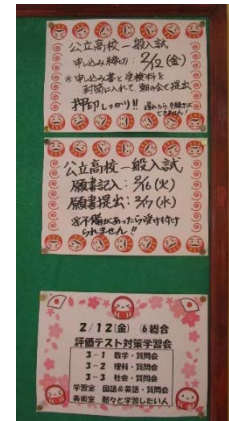 公立高校一般入試
申し込み締切：2/12(金)
※申し込み書と受検料を
封筒に入れて、朝の会で提出
押印しっかり!!
できません!
公立高校一般入試
願書記入：2/16(火)
願書提出：2/17(水)
※不備があったら受け付け
られません!!
2/12(金) 6総合
評価テスト対策学習会
3－1 数学・質問会
3－2 理科・質問会
3－3 社会・質問会
学習室 国語＆英語・質問会
美術室 黙々と学習したい人